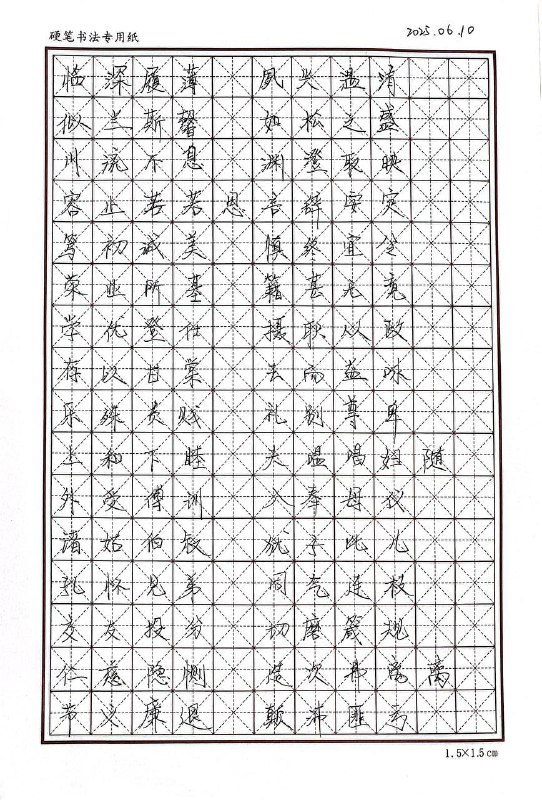 硬笔书法专用纸 2025.06.10
临深履薄 夙兴温凊
似兰斯馨 如松之盛
川流不息 渊澄取映
容止若若思 言辞安定
笃初诚美 慎终宜令
荣业所基 籍甚无竟
学优登仕 摄职从政
存以甘棠 去而益咏
乐殊贵贱 礼别尊卑
上和下睦 夫唱唱妇随
外受傅训 入奉母仪
诸姑伯叔 犹子比儿
孔怀兄弟 同气连枝
交友投分 切磨箴规
仁慈隐恻 造次弗离离
节义廉退 颠沛匪亏
1.5×1.5cm